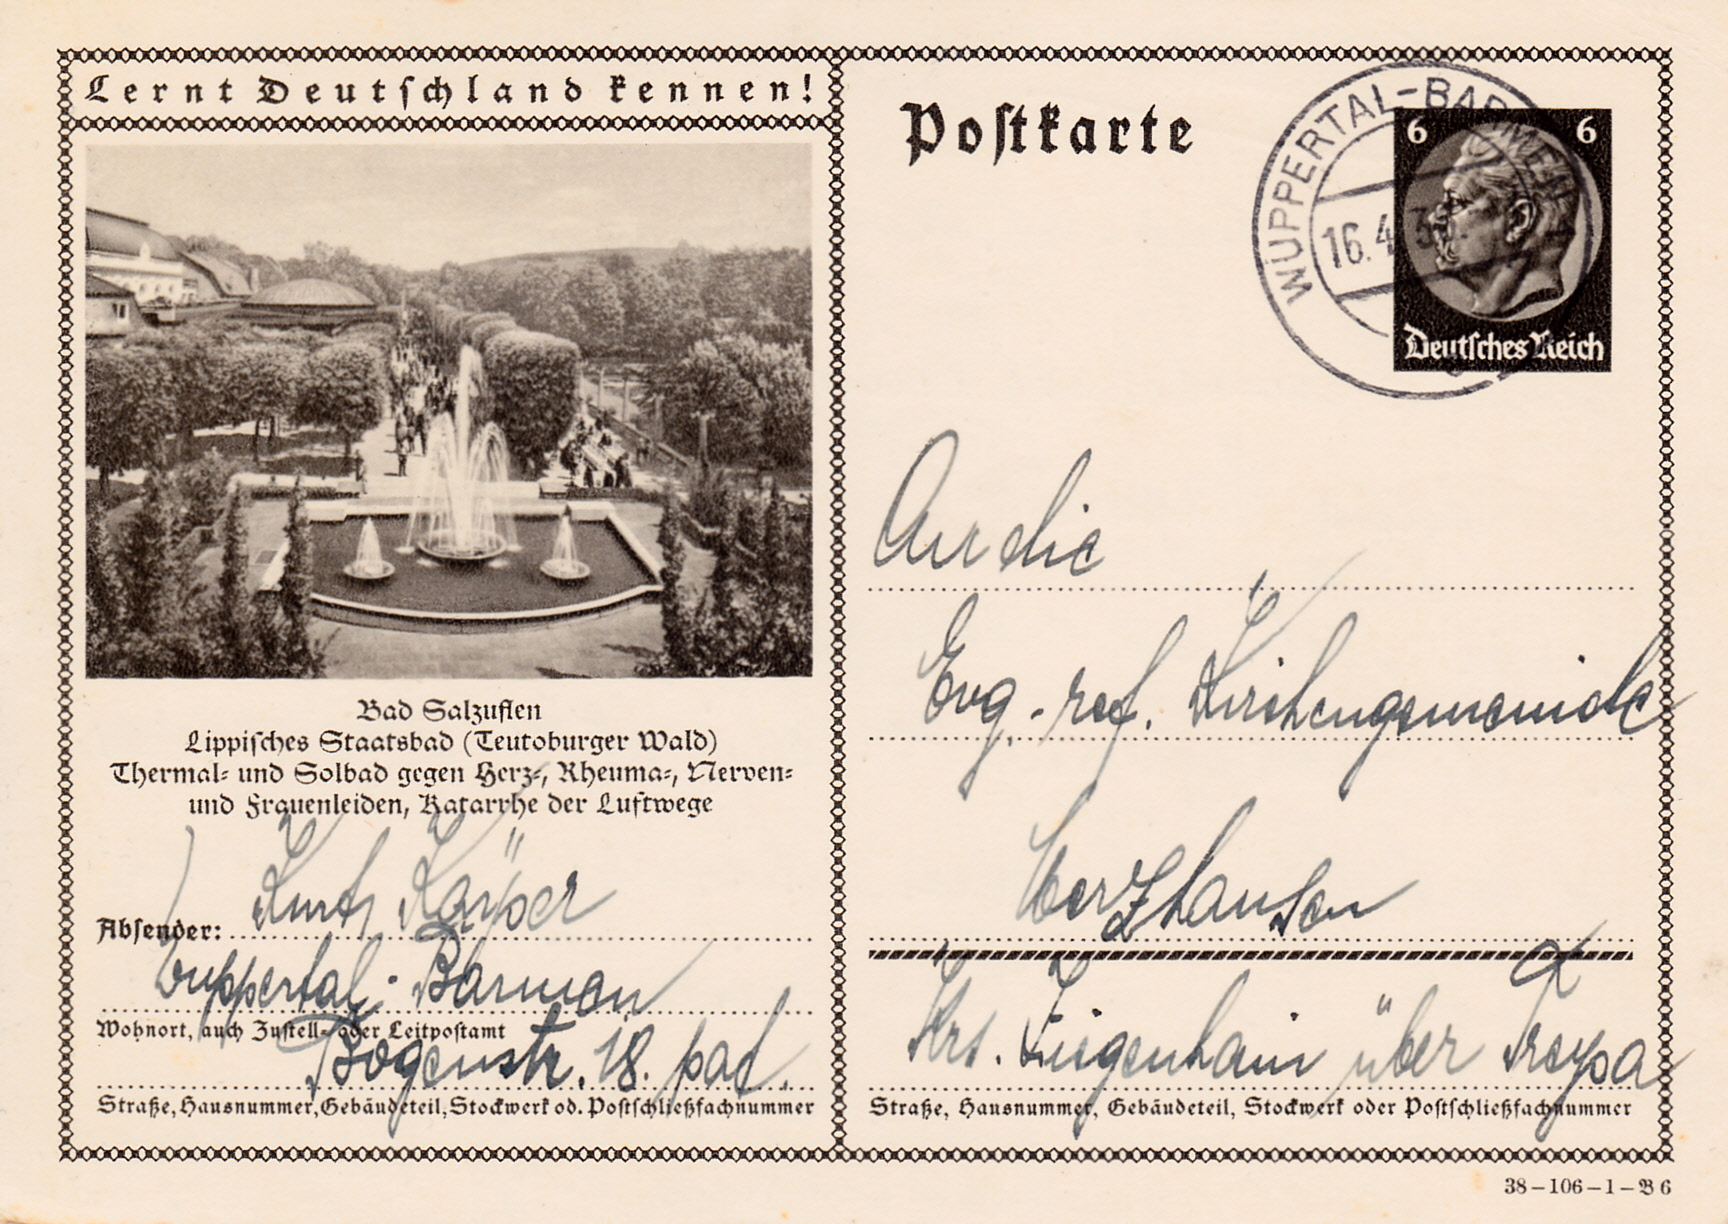 Lernt Deutschland kennen!
Bad Salzuflen
Lippisches Staatsbad (Teutoburger Wald)
Thermal- und Solbad gegen Herz-, Rheuma-, Nerven-
und Frauenleiden, Katarrhe der Luftwege
Absender: Kurt
Wuppertal-Barmen
Wohnort, auch Zustell- oder Leitpostamt
Bogenstr. 18.
Straße, Hausnummer, Gebäudeteil, Stockwerk od. Postschließfachnummer
Postkarte
WUPPERTAL-BARMEN
16.4.
6 6
Deutsches Reich
An die
Evg.-ref. Kirchengemeinde
Merzhausen
Krs. Ziegenhain über Treysa
Straße, Hausnummer, Gebäudeteil, Stockwerk oder Postschließfachnummer
38-106-1-B6